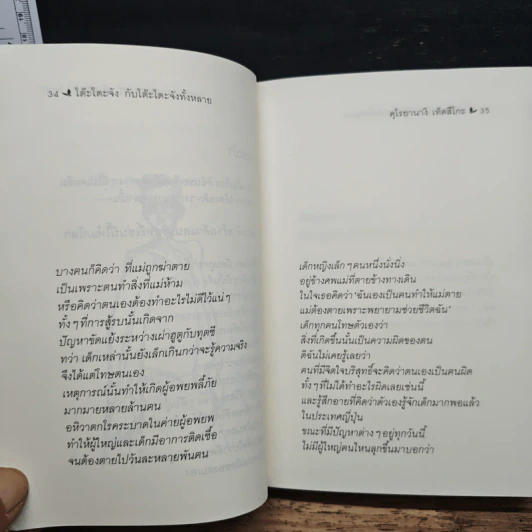 34 โต๊ะโตะจัง กับโต๊ะโตะจังทั้งหลาย
บางคนก็คิดว่า ที่แม่ถูกฆ่าตาย
เป็นเพราะตนทำสิ่งที่แม่ห้าม
หรือคิดว่าตนเองต้องทำอะไรไม่ดีไว้แน่ ๆ
ทั้ง ๆ ที่การสู้รบนั้นเกิดจาก
ปัญหาขัดแย้งระหว่างเผ่าฮูตูกับทุตซี
ทว่า เด็กเหล่านั้นยังเล็กเกินกว่าจะรู้ความจริง
จึงได้แต่โทษตนเอง
เหตุการณ์นั้นทำให้เกิดผู้อพยพลี้ภัย
มากมายหลายล้านคน
อหิวาตกโรคระบาดในค่ายผู้อพยพ
ทำให้ผู้ใหญ่และเด็กมีอาการติดเชื้อ
จนต้องตายไปวันละหลายพันคน
คุโรยานางิ เท็ตสึโกะ 35
เด็กหญิงเล็ก ๆ คนหนึ่งนั่งนิ่ง
อยู่ข้างศพแม่ที่ตายข้างทางเดิน
ในใจเธอคิดว่า 'ฉันเองเป็นคนทำให้แม่ตาย
แม่ต้องตายเพราะพยายามช่วยชีวิตฉัน'
เด็กทุกคนโทษตัวเองว่า
สิ่งที่เกิดขึ้นนั้นเป็นความผิดของตน
ดิฉันไม่เคยรู้เลยว่า
คนที่มีจิตใจบริสุทธิ์จะคิดว่าตนเองเป็นคนผิด
ทั้ง ๆ ที่ไม่ได้ทำอะไรผิดเลยเช่นนี้
และรู้สึกอายที่คิดว่าตัวเองรู้จักเด็กมากพอแล้ว
ในประเทศญี่ปุ่น
ขณะที่มีปัญหาต่าง ๆ อยู่ทุกวันนี้
ไม่มีผู้ใหญ่คนไหนลุกขึ้นมาบอกว่า